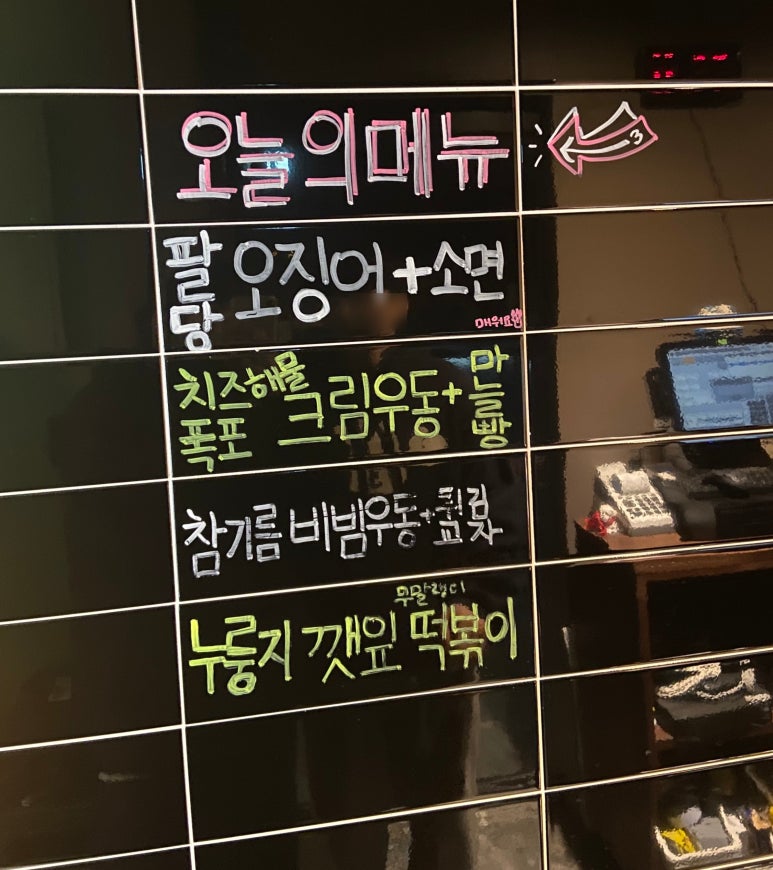 오늘의메뉴
3
팔당 오징어+소면
매워요
치즈폭포 해물 크림우동+마늘빵
참기름 비빔우동+튀김교자
무말랭이
누룽지 깻잎 떡볶이